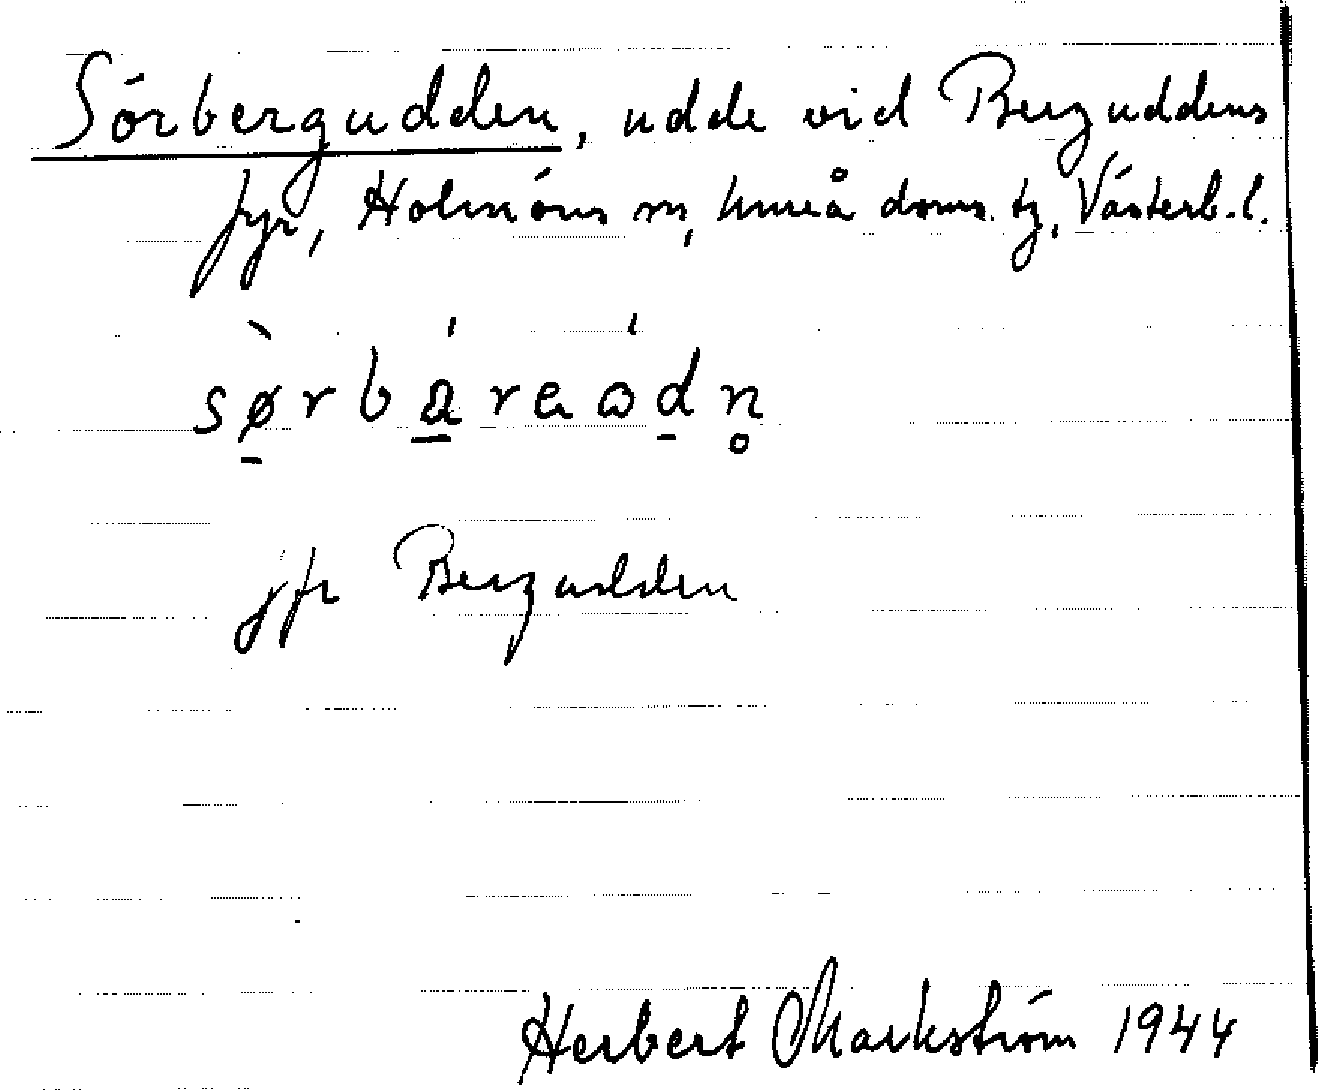 Sörbergudden, udde vid Berguddens
fyr, Holmöns sn, Umeå doms. tg, Västerb. l.
sø̱̀rba̱̍reɷ̍ḏn̥
jfr Bergudden
Herbert Markström 1944